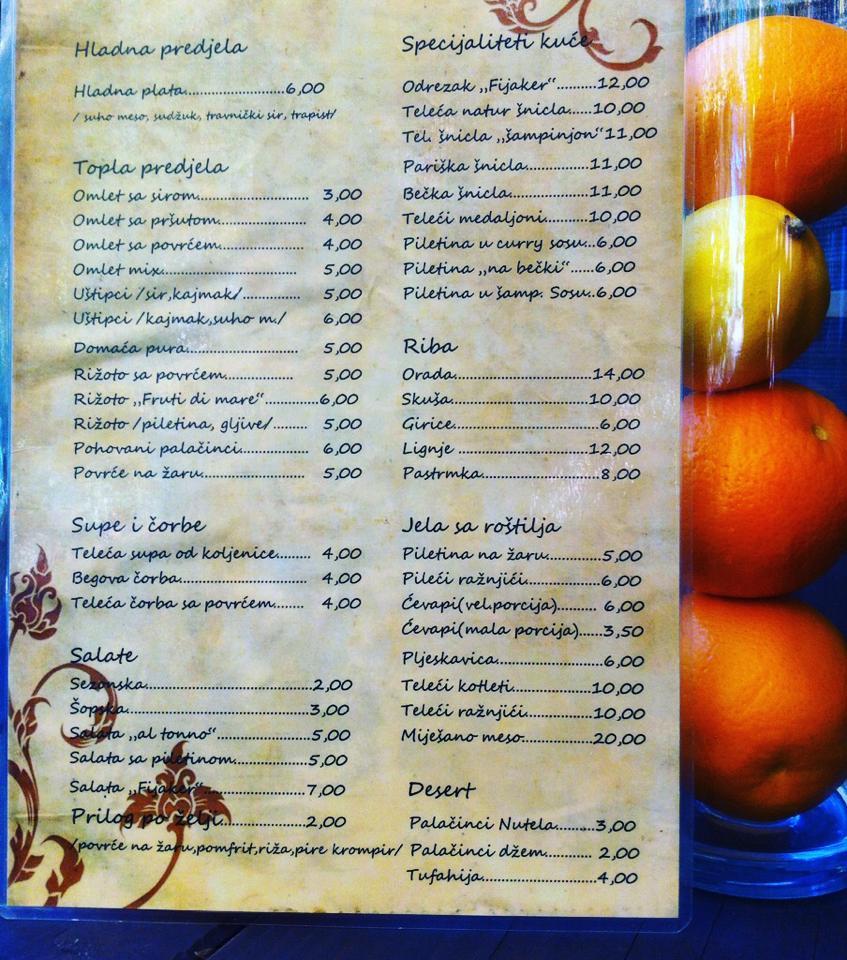 Hladna predjela
Hladna plata........................6,00
/ suho meso, sudžuk, travnički sir, trapist/
Topla predjela
Omlet sa sirom........................... 3,00
Omlet sa pršutom..................... 4,00
Omlet sa povrćem.................... 4,00
Omlet mix................................ 5,00
Uštipci /sir,kajmak/.............. 5,00
Uštipci /kajmak,suho m./ 6,00
Domaća pura........................... 5,00
Rižoto sa povrćem................. 5,00
Rižoto „Fruti di mare“.............6,00
Rižoto /piletina, gljive/......... 5,00
Pohovani palačinci................ 6,00
Povrće na žaru......................... 5,00
Supe i čorbe
Teleća supa od koljenice......... 4,00
Begova čorba............................... 4,00
Teleća čorba sa povrćem........ 4,00
Salate
Sezonska........................................2,00
Šopska............................................3,00
Salata „al tonno“.......................5,00
Salata sa piletinom..................5,00
Salata „Fijaker“.........................7,00
Prilog po želji....................2,00
/povrće na žaru,pomfrit,riža,pire krompir/
Specijaliteti kuće
Odrezak „Fijaker“..........12,00
Teleća natur šnicla.....10,00
Tel. šnicla „šampinjon“11,00
Pariška šnicla...............11,00
Bečka šnicla...................11,00
Teleći medaljoni..........10,00
Piletina u curry sosu...6,00
Piletina „na bečki“......6,00
Piletina u šamp. Sosu..6,00
Riba
Orada.................................14,00
Skuša................................10,00
Girice..................................6,00
Lignje ..............................12,00
Pastrmka...........................8,00
Jela sa roštilja
Piletina na žaru.............5,00
Pileći ražnjići..................6,00
Ćevapi(vel.porcija).......... 6,00
Ćevapi(mala porcija)......3,50
Pljeskavica.........................6,00
Teleći kotleti...................10,00
Teleći ražnjići................10,00
Miješano meso.................20,00
Desert
Palačinci Nutela..........3,00
Palačinci džem........... 2,00
Tufahija...........................4,00